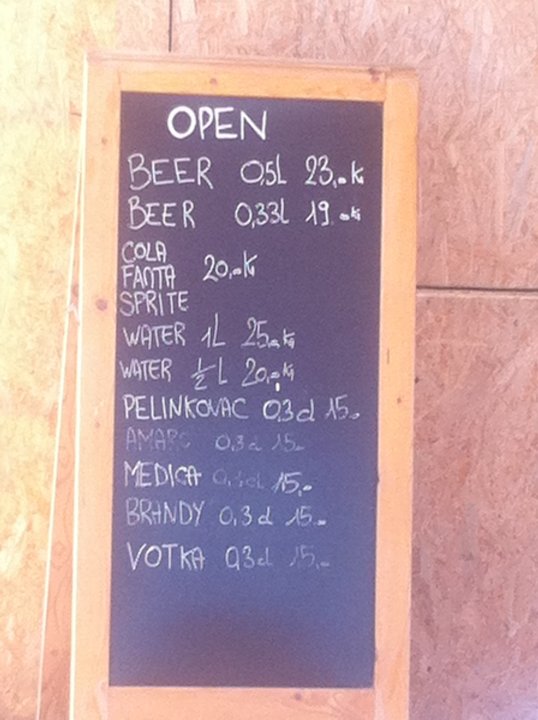 OPEN
BEER 0,5L 23,-k
BEER 0,33l 19 -k
COLA
FANTA 20,-K
SPRITE
WATER 1L 25,-k
WATER ½ L 20,-k
PELINKOVAC 0,3 d 15-
AMARO 0,3 d 15-
MEDICA 0,3 d 15,-
BRANDY 0,3 d 15-
VOTKA 0,3 d 15,-